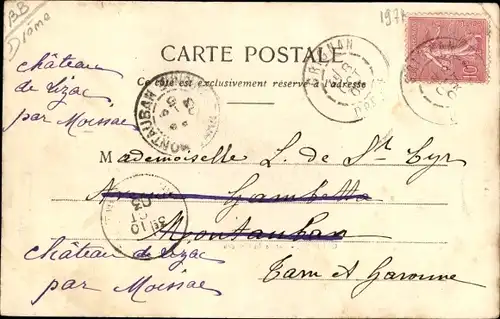 BB
Drôme
197A
CARTE POSTALE
Ce côté est exclusivement réservé à l'adresse
château
de Lizac
par Moissac
GRIGNAN
DRÔME
MONTAUBAN
10
Mademoiselle L. de St Cyr
Avenue Gambetta
Montauban
Tarn et Garonne
château de Lizac
par Moissac